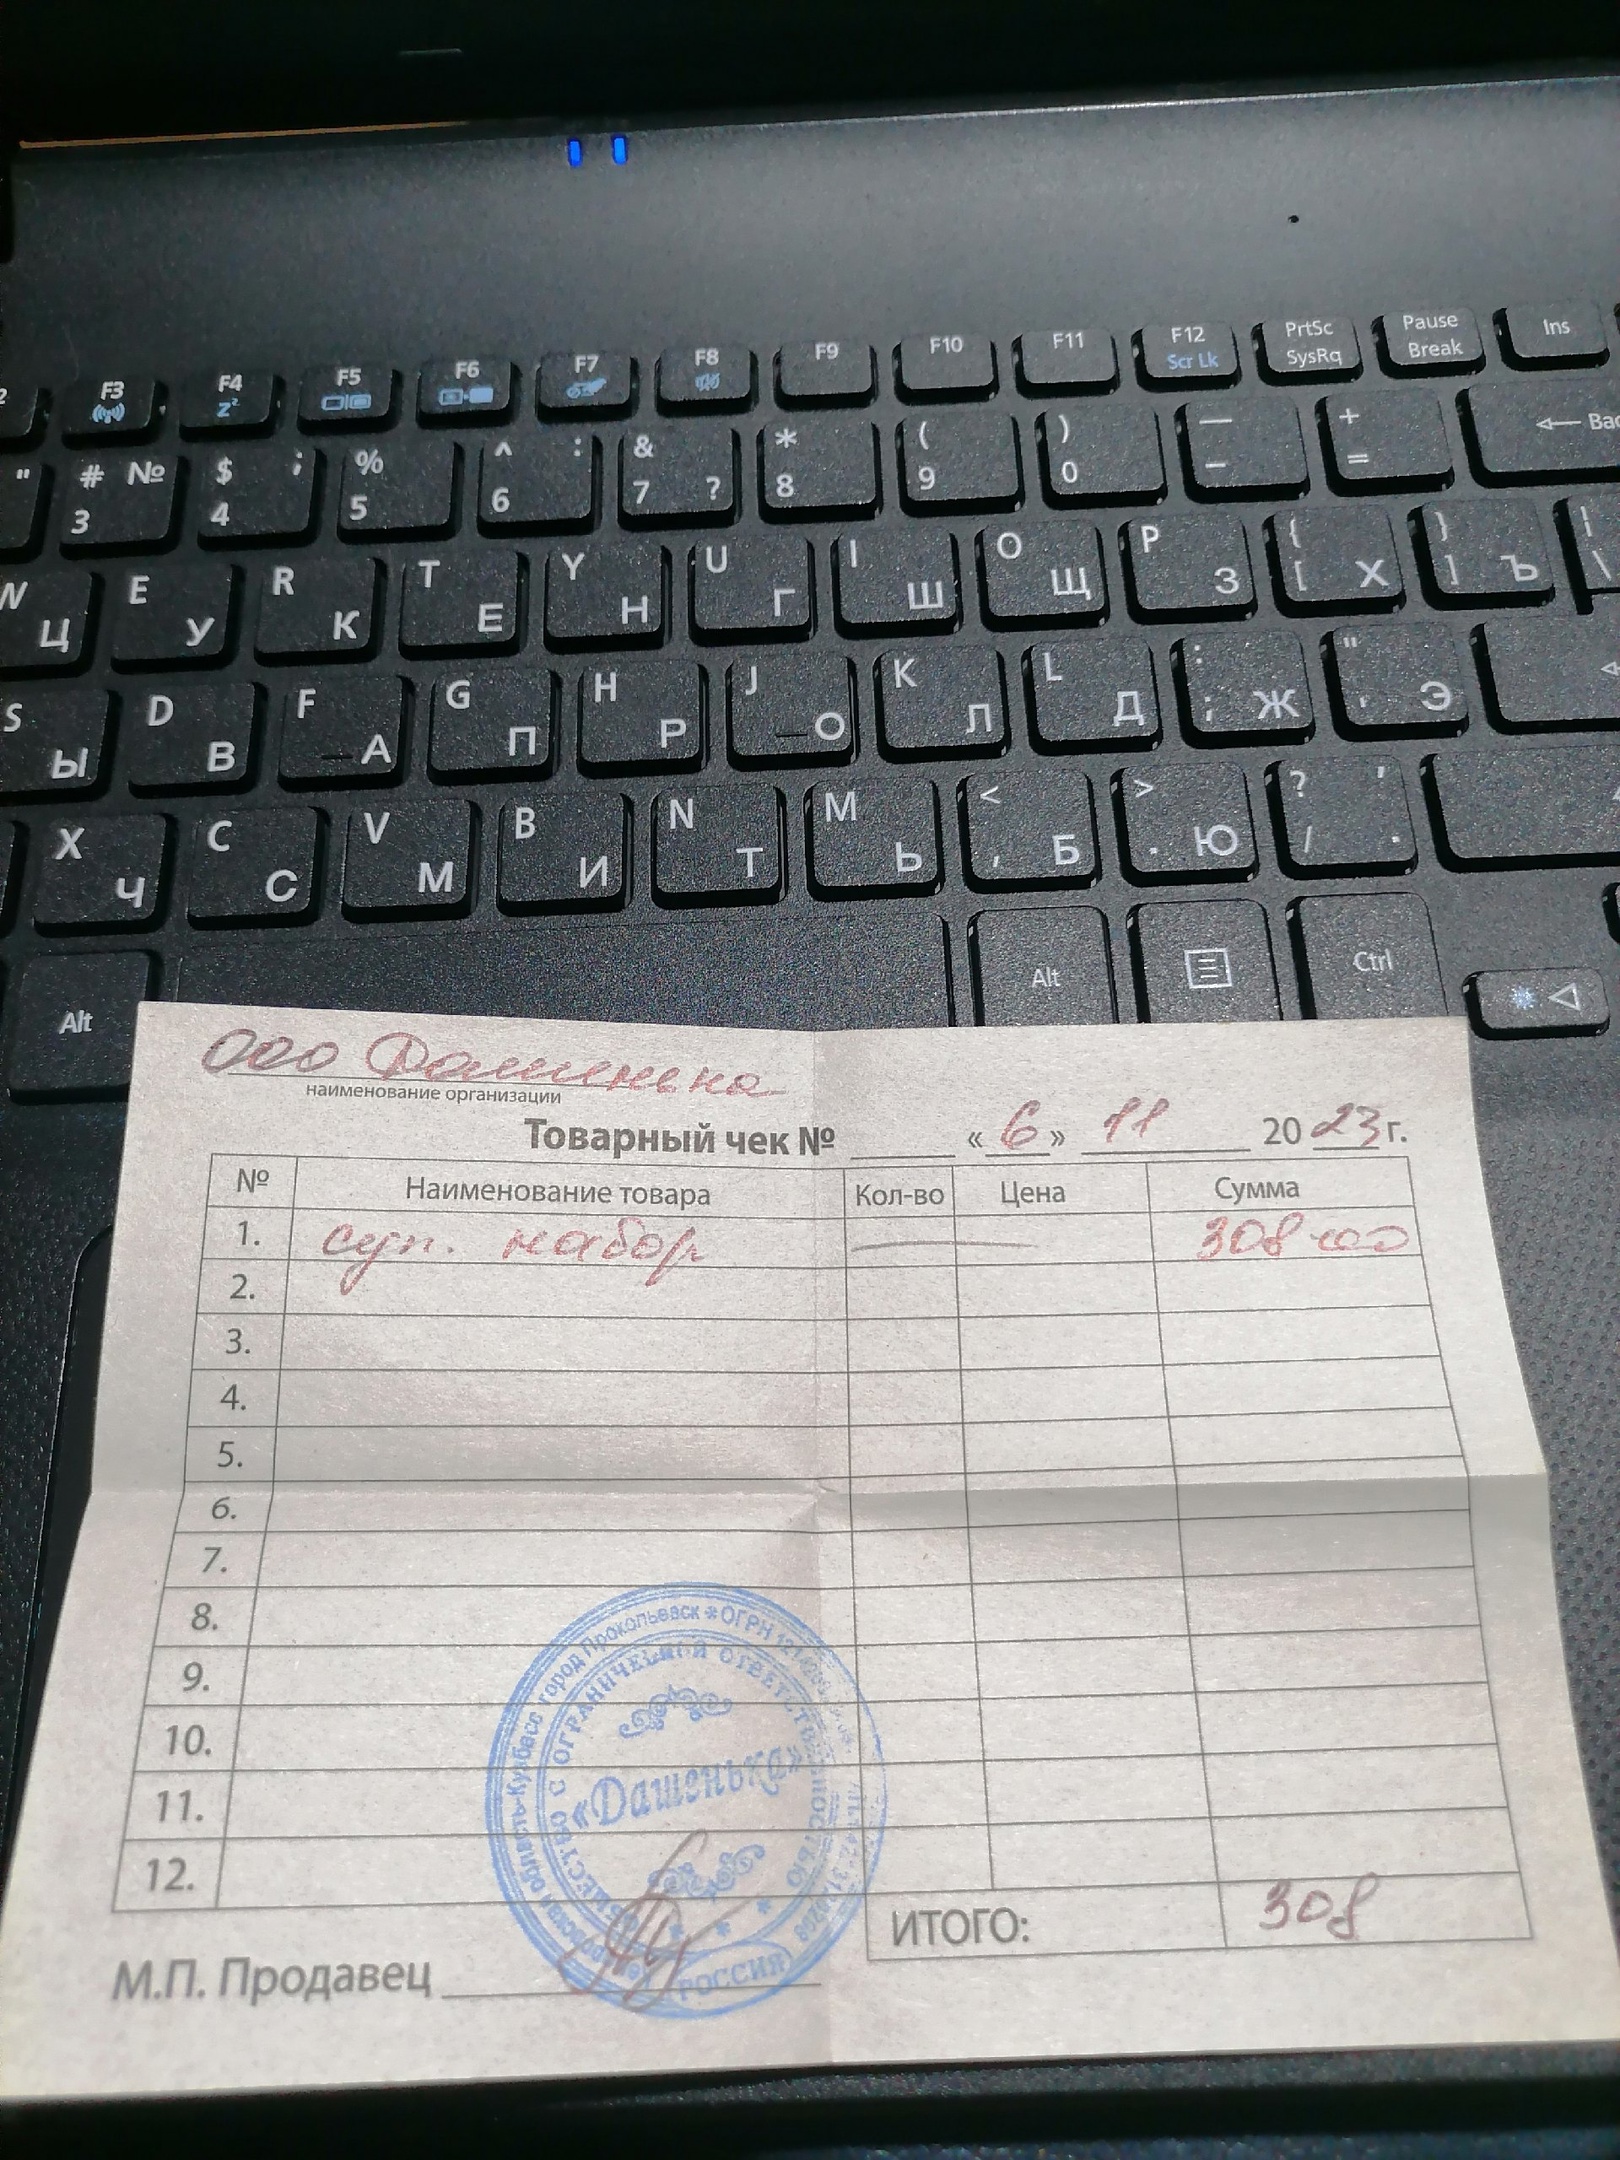 F3 F4 F5 F6 F7 F8 F9 F10 F11 F12 PrtSc Pause Ins
Scr Lk SysRq Break
" # № $ ; % ^ : & * ( ) — +
3 4 5 6 7 ? 8 9 0 – =
W E R T Y U I O P { }
Ц У К Е Н Г Ш Щ З [ Х ] Ъ \
S D F G H J K L : "
Ы В А П Р О Л Д ; Ж ' Э
X C V B N M < > ? ,
Ч С М И Т Ь , Б . Ю / .
Alt Alt Ctrl
ООО Дашенька
наименование организации
Товарный чек № « 6 » 11 20 23 г.
№ Наименование товара Кол-во Цена Сумма
1. суп. набор — 308=00
2.
3.
4.
5.
6.
7.
8.
9.
10.
11.
12.
ИТОГО: 308
М.П. Продавец
город Прокопьевск * ОГРН
ОБЩЕСТВО С ОГРАНИЧЕННОЙ ОТВЕТСТВЕННОСТЬЮ
«Дашенька»
РОССИЯ